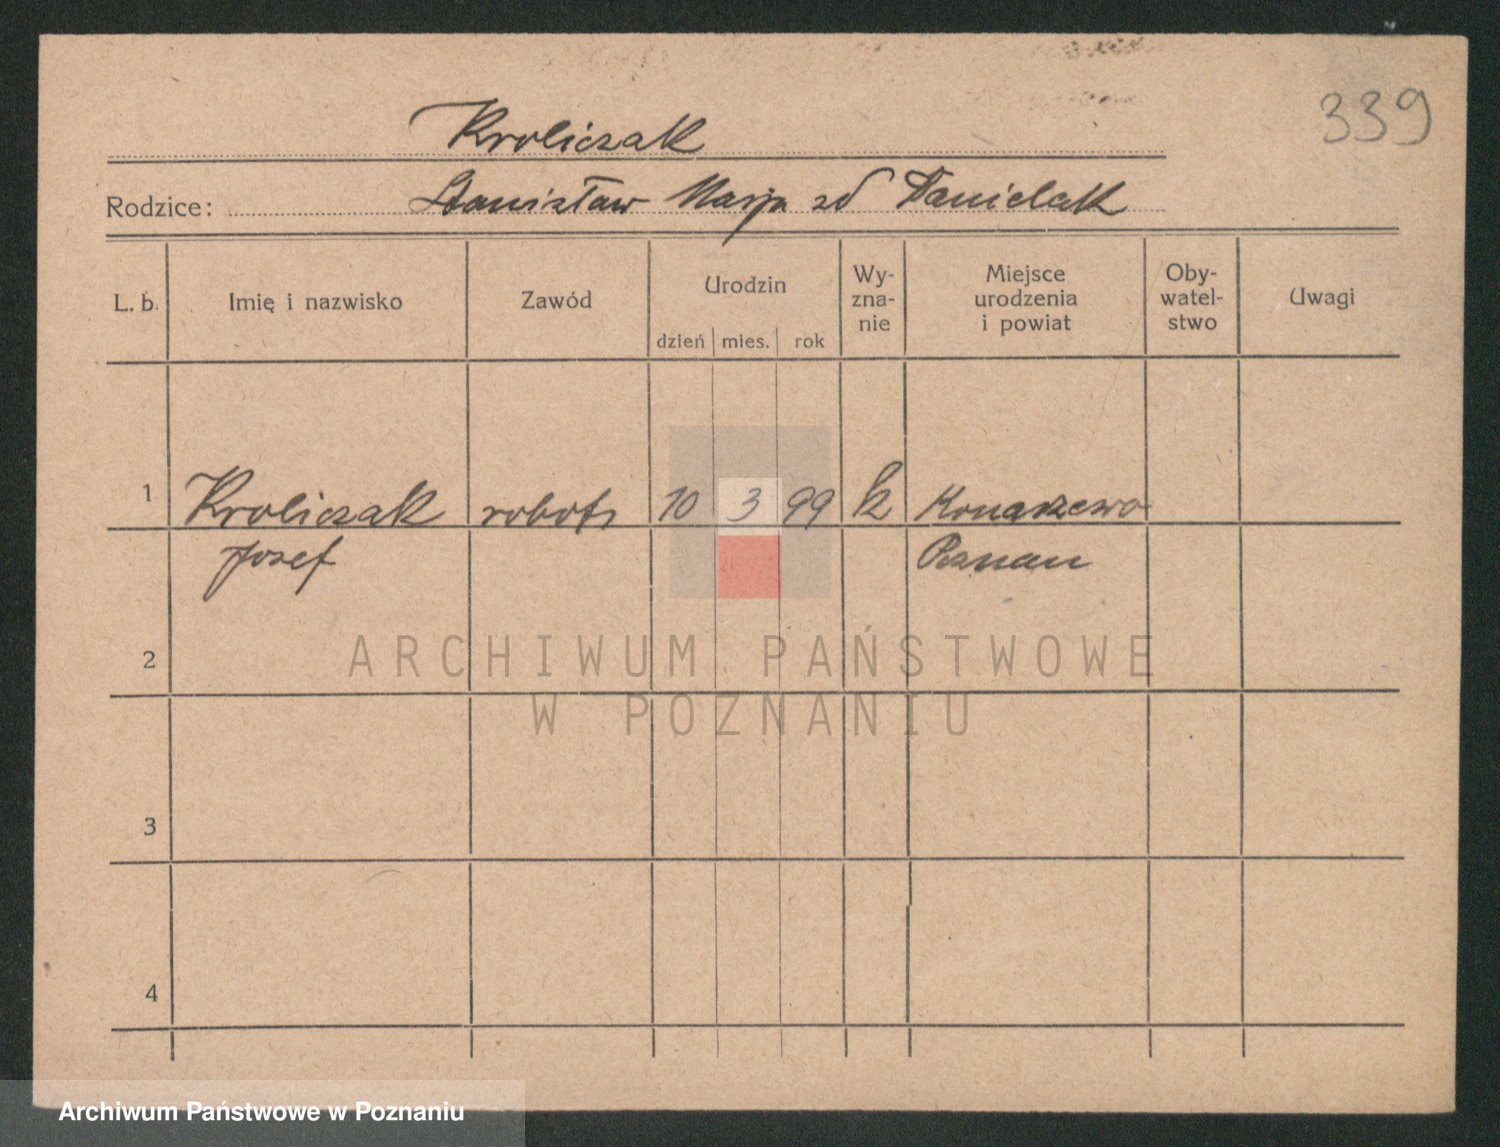 339
Kroliczak
Rodzice: Stanisław Marja zd Danielak
L. b. Imię i nazwisko Zawód Urodzin dzień mies. rok Wy-zna-nie Miejsce urodzenia i powiat Oby-watel-stwo Uwagi
1 Kroliczak robotn 10 3 99 k Konarzewo
Josef Poznan
2
ARCHIWUM PAŃSTWOWE
W POZNANIU
3
4
Archiwum Państwowe w Poznaniu